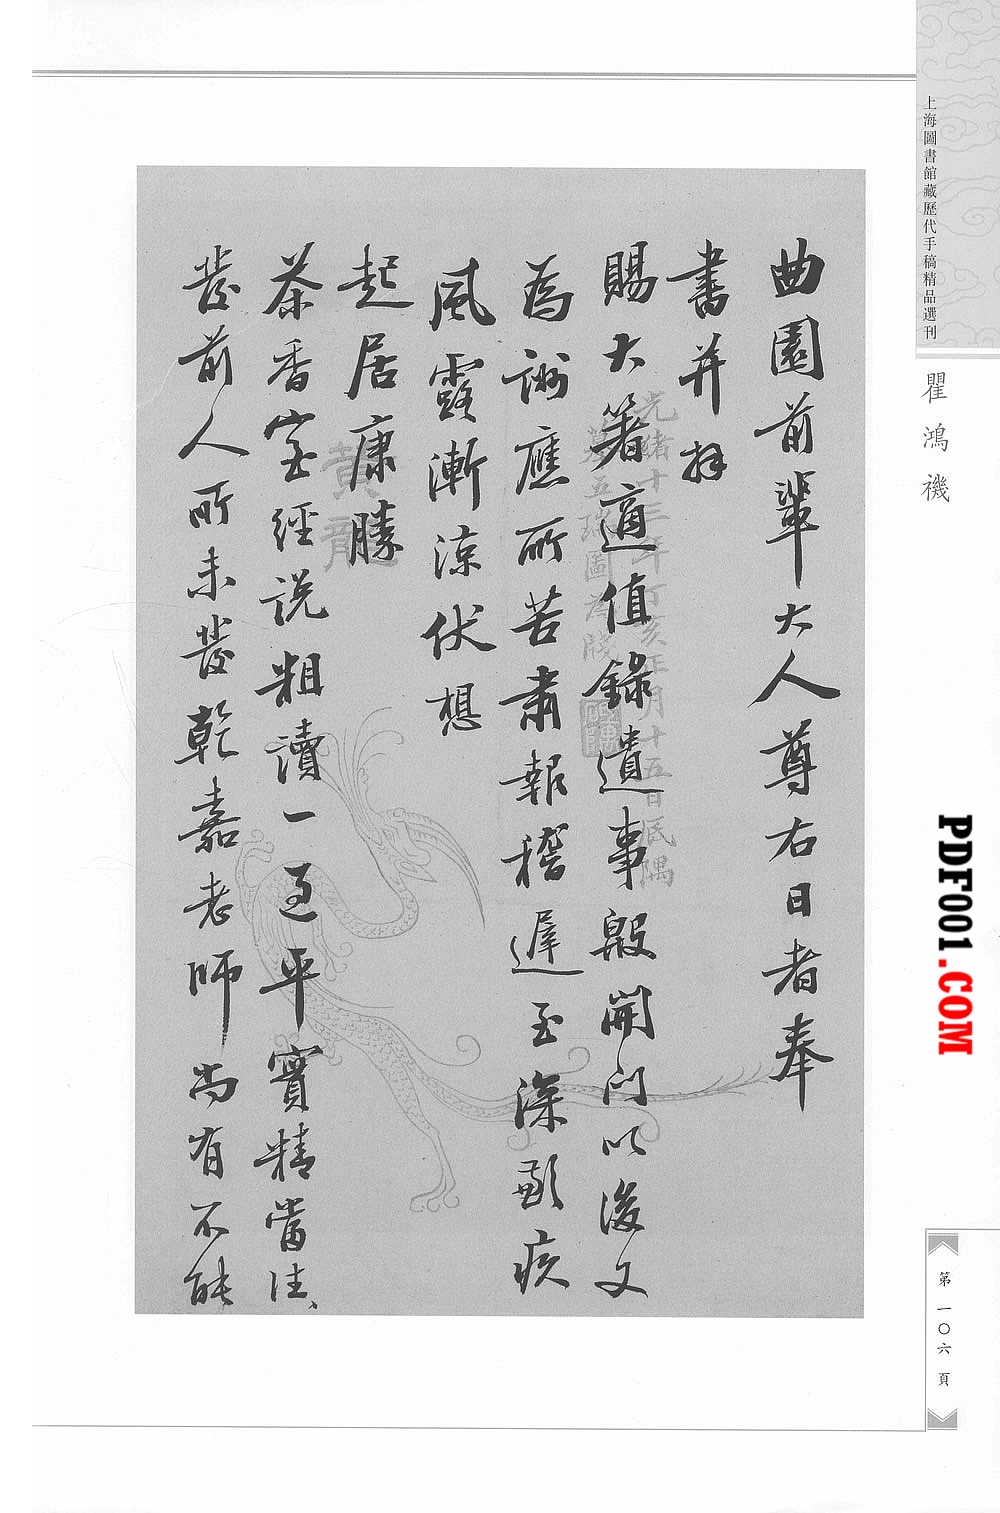 上海圖書館藏歷代手稿精品選刊
瞿鴻禨
曲園前輩大人尊右日者奉
書并拜
賜大著適值錄遺事殷開門以後又
為謝應所苦肅報稽遲至深歉疚
風露漸涼伏想
起居康勝
茶香室經說粗讀一過平實精當往、
發前人所未發乾嘉老師尚有不能
光緒十三年丁亥正月十五日
摹五瑞圖為牋
黃龍
PDF001.COM
第一〇六頁